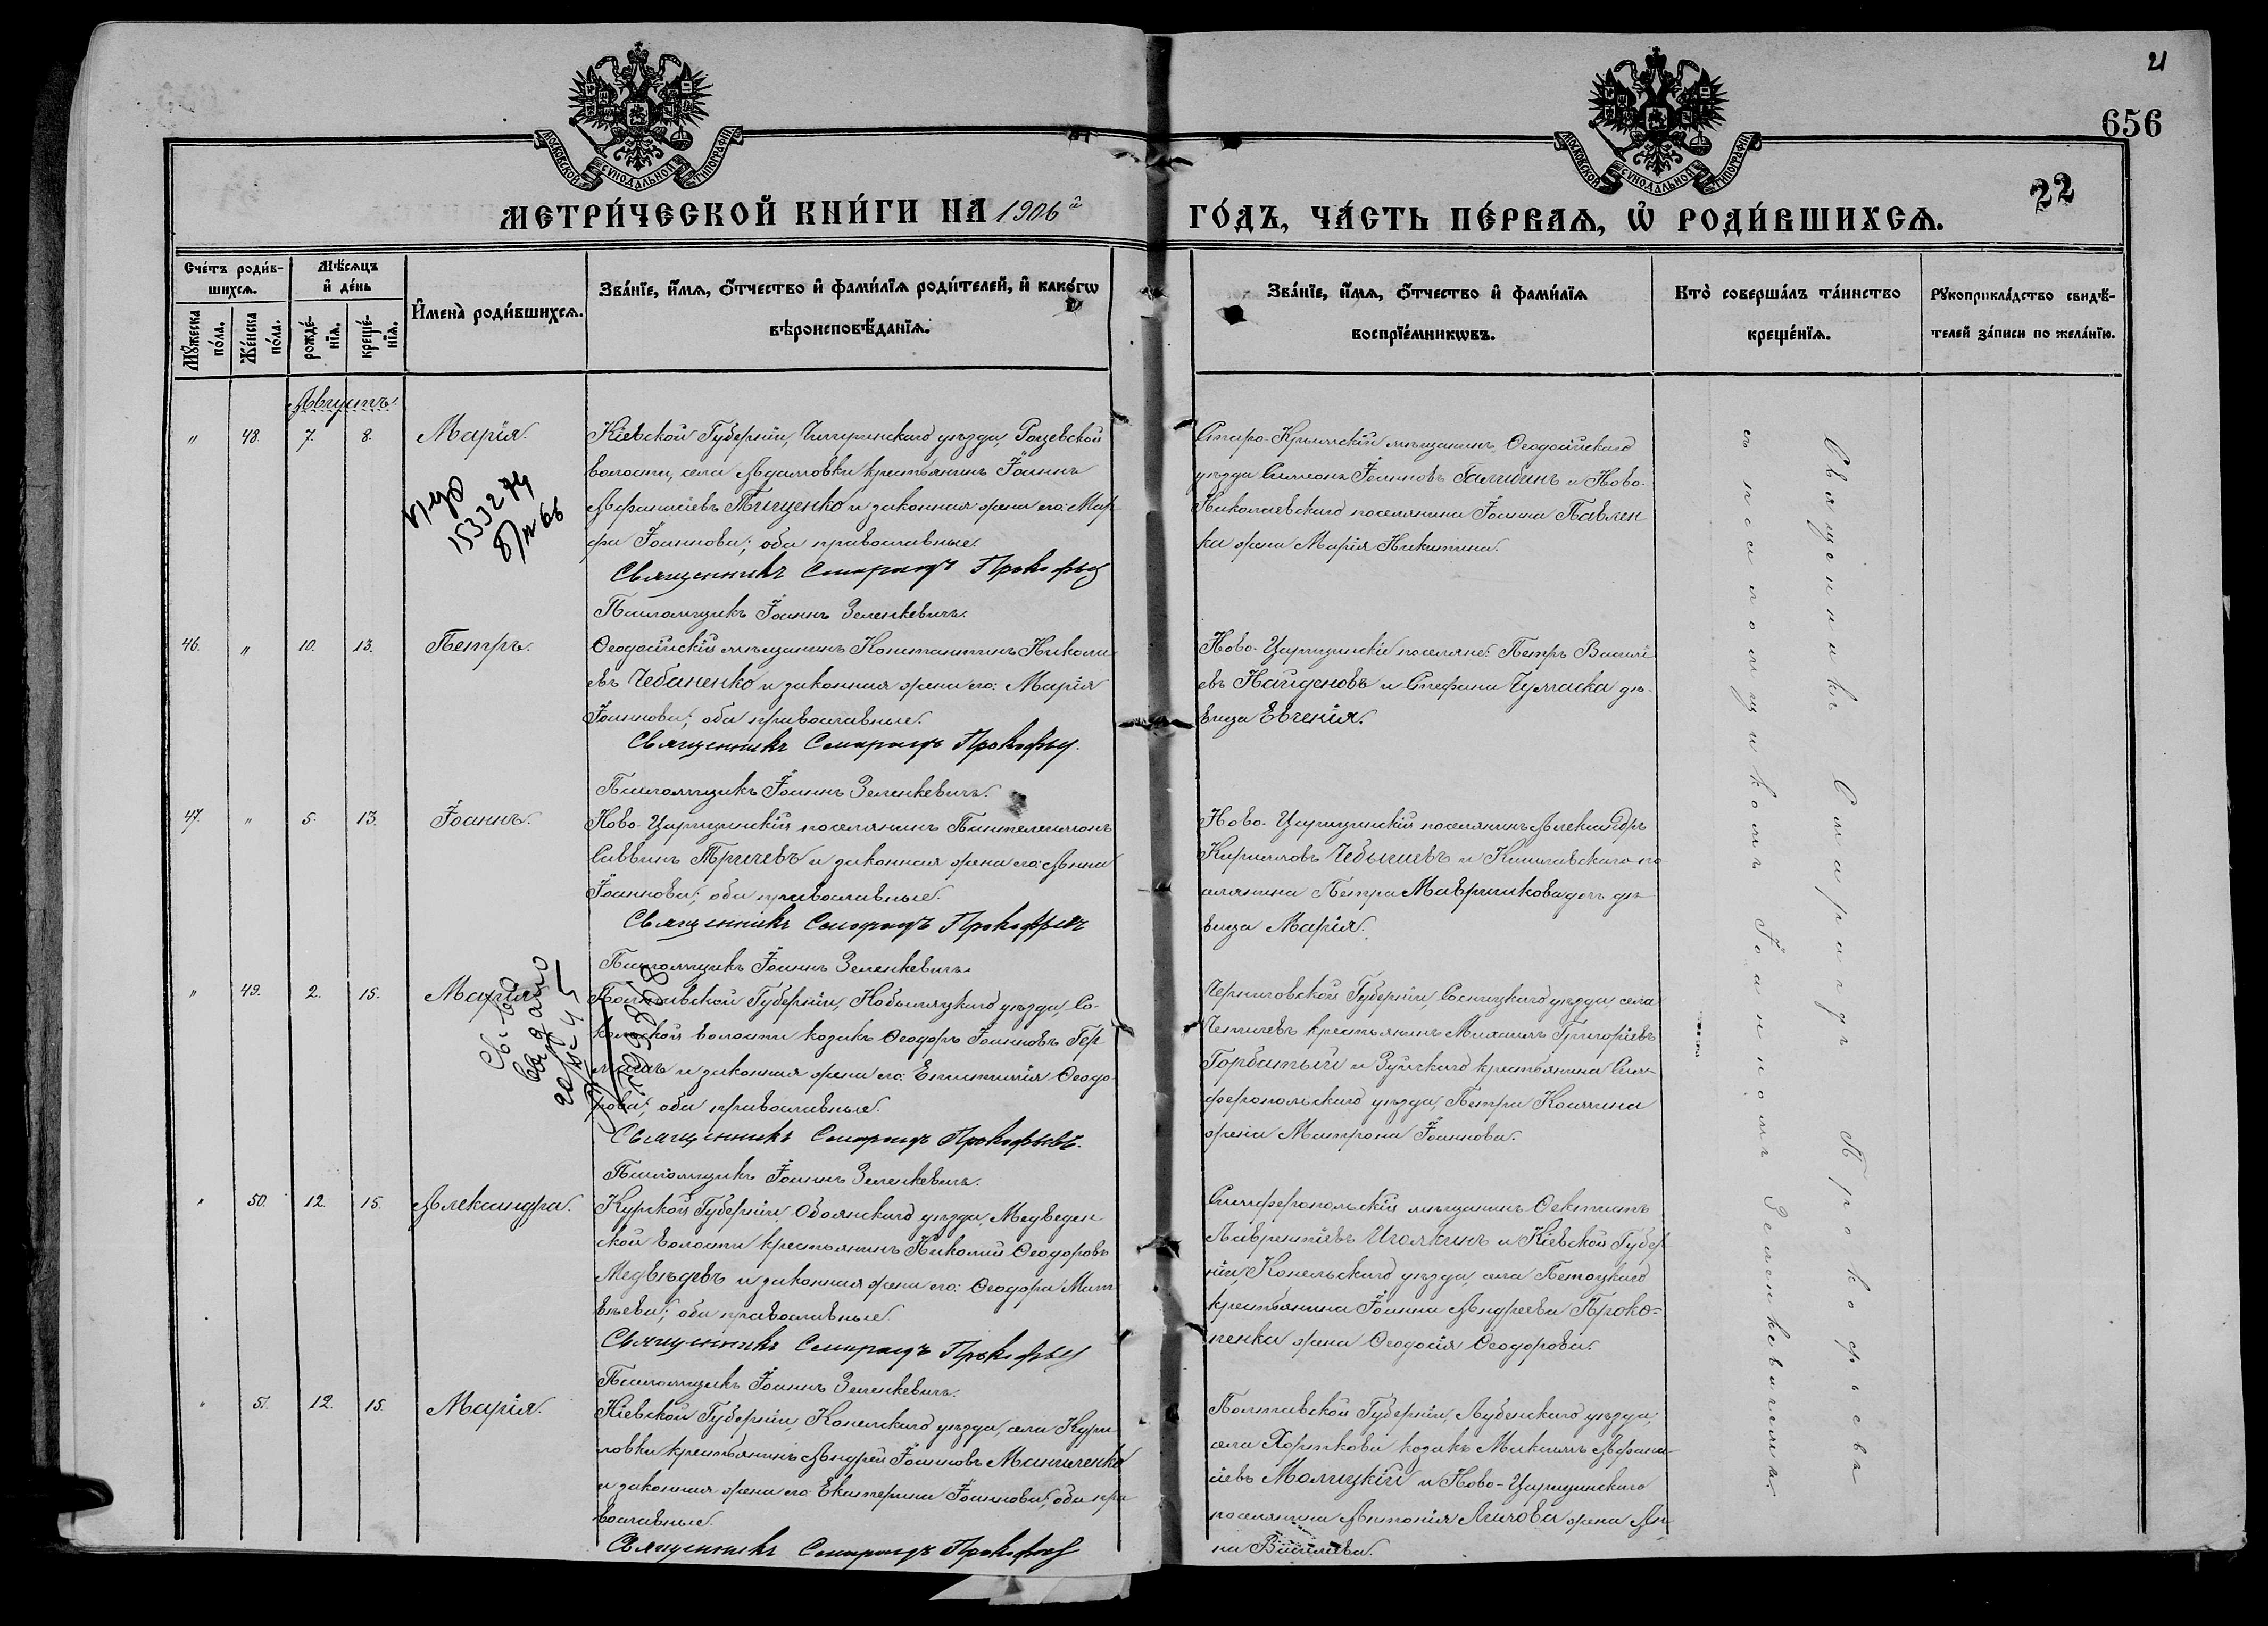 21
656
22
МОСКОВСКОЙ СѴНОДАЛЬНОЙ ТИПОГРАФІИ
МОСКОВСКОЙ СѴНОДАЛЬНОЙ ТИПОГРАФІИ
МЕТРИ́ЧЕСКОЙ КНИ́ГИ НА 1906й
ГО́ДЪ, ЧА́СТЬ ПЕ́РВАѦ, Ѡ҆ РОДИ́ВШИХСѦ.
Сче́тъ роди́в-
шихсѧ.
Мѣ́сѧцъ
и҆ де́нь
Мꙋ́жеска
по́ла.
Же́нска
по́ла.
рожде́-
нїѧ.
креще́-
нїѧ.
И҆мена̀ роди́вшихсѧ.
Зва́нїе, и҆́мѧ, ѻ҆́тчество и҆ фами́лїѧ роди́телей, и҆ како́гѡ
вѣроисповѣ́данїѧ.
Зва́нїе, и҆́мѧ, ѻ҆́тчество и҆ фами́лїѧ
воспрїе́мникѡвъ.
Кто̀ соверша́лъ та́инство
креще́нїѧ.
Рꙋкоприкла́дство свидѣ́-
телей за́писи по жела́нїю.
Августъ.
" 48. 7. 8. Марія.
Кіевской Губерніи, Чигиринскаго уѣзда,
волости, села Адамовки крестьянинъ Іоаннъ
Афанасіевъ Тищенко и законная жена его: Мар-
фа Іоаннова; оба православные.
Священникъ Смарагдъ Прокофьев
Псаломщикъ Іоаннъ Зеленкевичъ.
Старо-Крымскій мѣщанинъ, Ѳеодосійскаго
уѣзда Симеонъ Іоанновъ Галибинъ и Ново-
Николаевскаго поселянина Іоанна Павлен
ка жена Марія Никитина.
1533274
46. " 10. 13. Петръ.
Ѳеодосійскій мѣщанинъ Константинъ Никола
евъ Чебаненко и законная жена его: Марія
Іоаннова; оба православные.
Священникъ Смарагдъ Прокофьев.
Псаломщикъ Іоаннъ Зеленкевичъ.
Ново-Царицинскіе поселяне: Петръ Василі
евъ Найденовъ и Стефана Чумаска дѣ-
вица Евгенія.
47. " 5. 13. Іоаннъ.
Ново-Царицинскій поселянинъ Пантелеимонъ
Саввинъ Тричевъ и законная жена его: Анна
Іоаннова; оба православные.
Священникъ Смарагдъ Прокофьевъ
Псаломщикъ Іоаннъ Зеленкевичъ.
Ново-Царицинскій поселянинъ Александръ
Кирилловъ Чебышевъ и Кишлавскаго по
селянина Петра Мавринкова дочь дѣ
вица Марія.
" 49. 2. 15. Марія.
Полтавской Губерніи, Кобыляцкаго уѣзда, Со-
кольской волости козакъ Ѳеодоръ Іоанновъ Гер
и законная жена его: Епистимія Ѳеодо
рова; оба православные.
Священникъ Смарагдъ Прокофьевъ.
Псаломщикъ Іоаннъ Зеленкевичъ.
Черниговской Губерніи, Сосницкаго уѣзда, села
крестьянинъ Михаилъ Григоріевъ
Горбатый и Зуйскаго крестьянина Сим-
феропольскаго уѣзда, Петра
жена Матрона Іоаннова.
" 50. 12. 15. Александра.
Курской Губерніи, Обоянскаго уѣзда, Медведен
ской волости крестьянинъ Николай Ѳеодоровъ
Медвѣдевъ и законная жена его: Ѳеодора Мат
вѣева; оба православные.
Священникъ Смарагдъ Прокофьев
Псаломщикъ Іоаннъ Зеленкевичъ.
Симферопольскій мѣщанинъ Ѳектистъ
Лаврентіевъ Иголкинъ и Кіевской Губер
ніи, Каневскаго уѣзда, села
крестьянина Іоанна Андреева Проко-
пенка жена Ѳеодосія Ѳеодорова.
" 51. 12. 15. Марія.
Кіевской Губерніи, Каневскаго уѣзда, села Кури
ловки крестьянинъ Андрей Іоанновъ
и законная жена его Екатерина Іоаннова; оба пра
вославные.
Священникъ Смарагдъ Прокофьев
Полтавской Губерніи, Лубенскаго уѣзда,
села козакъ Максимъ Афана
сіевъ Малицкій и Ново-Царицинскаго
поселянина Антонія жена Ан
на Васильева.
Священникъ Смарагдъ Прокофьевъ
съ псаломщикомъ Іоанномъ Зеленкевичемъ.